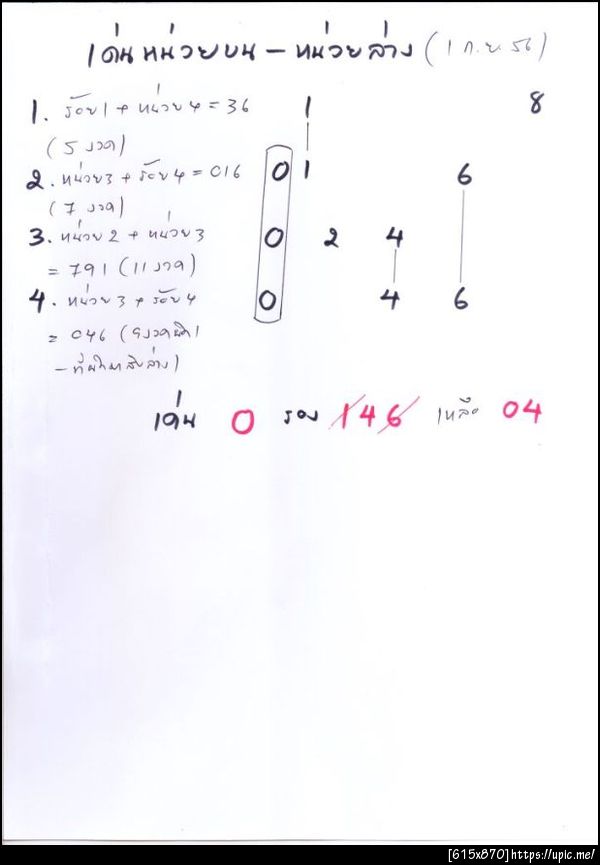 เด่นหน่วยบน - หน่วยล่าง (1 ก.ย. 56)
1. ร้อย 1 + หน่วย 4 = 36 1 8
(5 งวด)
2. หน่วย 3 + ร้อย 4 = 016 0 1 6
(7 งวด)
3. หน่วย 2 + หน่วย 3 0 2 4
= 791 (11 งวด)
4. หน่วย 3 + ร้อย 4 0 4 6
= 046
เด่น 0 รอง 146 เหลือ 04
[615x870]https://upic.me/